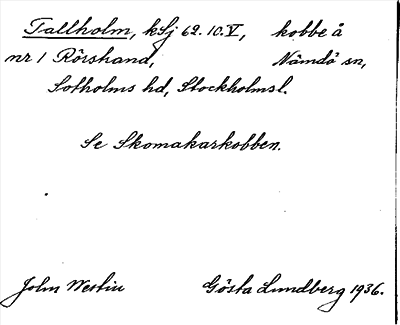 Tallholm, kSj 62.10.V, kobbe å
nr 1 Rörshand, Nämdö sn,
Sotholms hd, Stockholmsl.
Se Skomakarkobben.
John Westin Gösta Lundberg 1936.